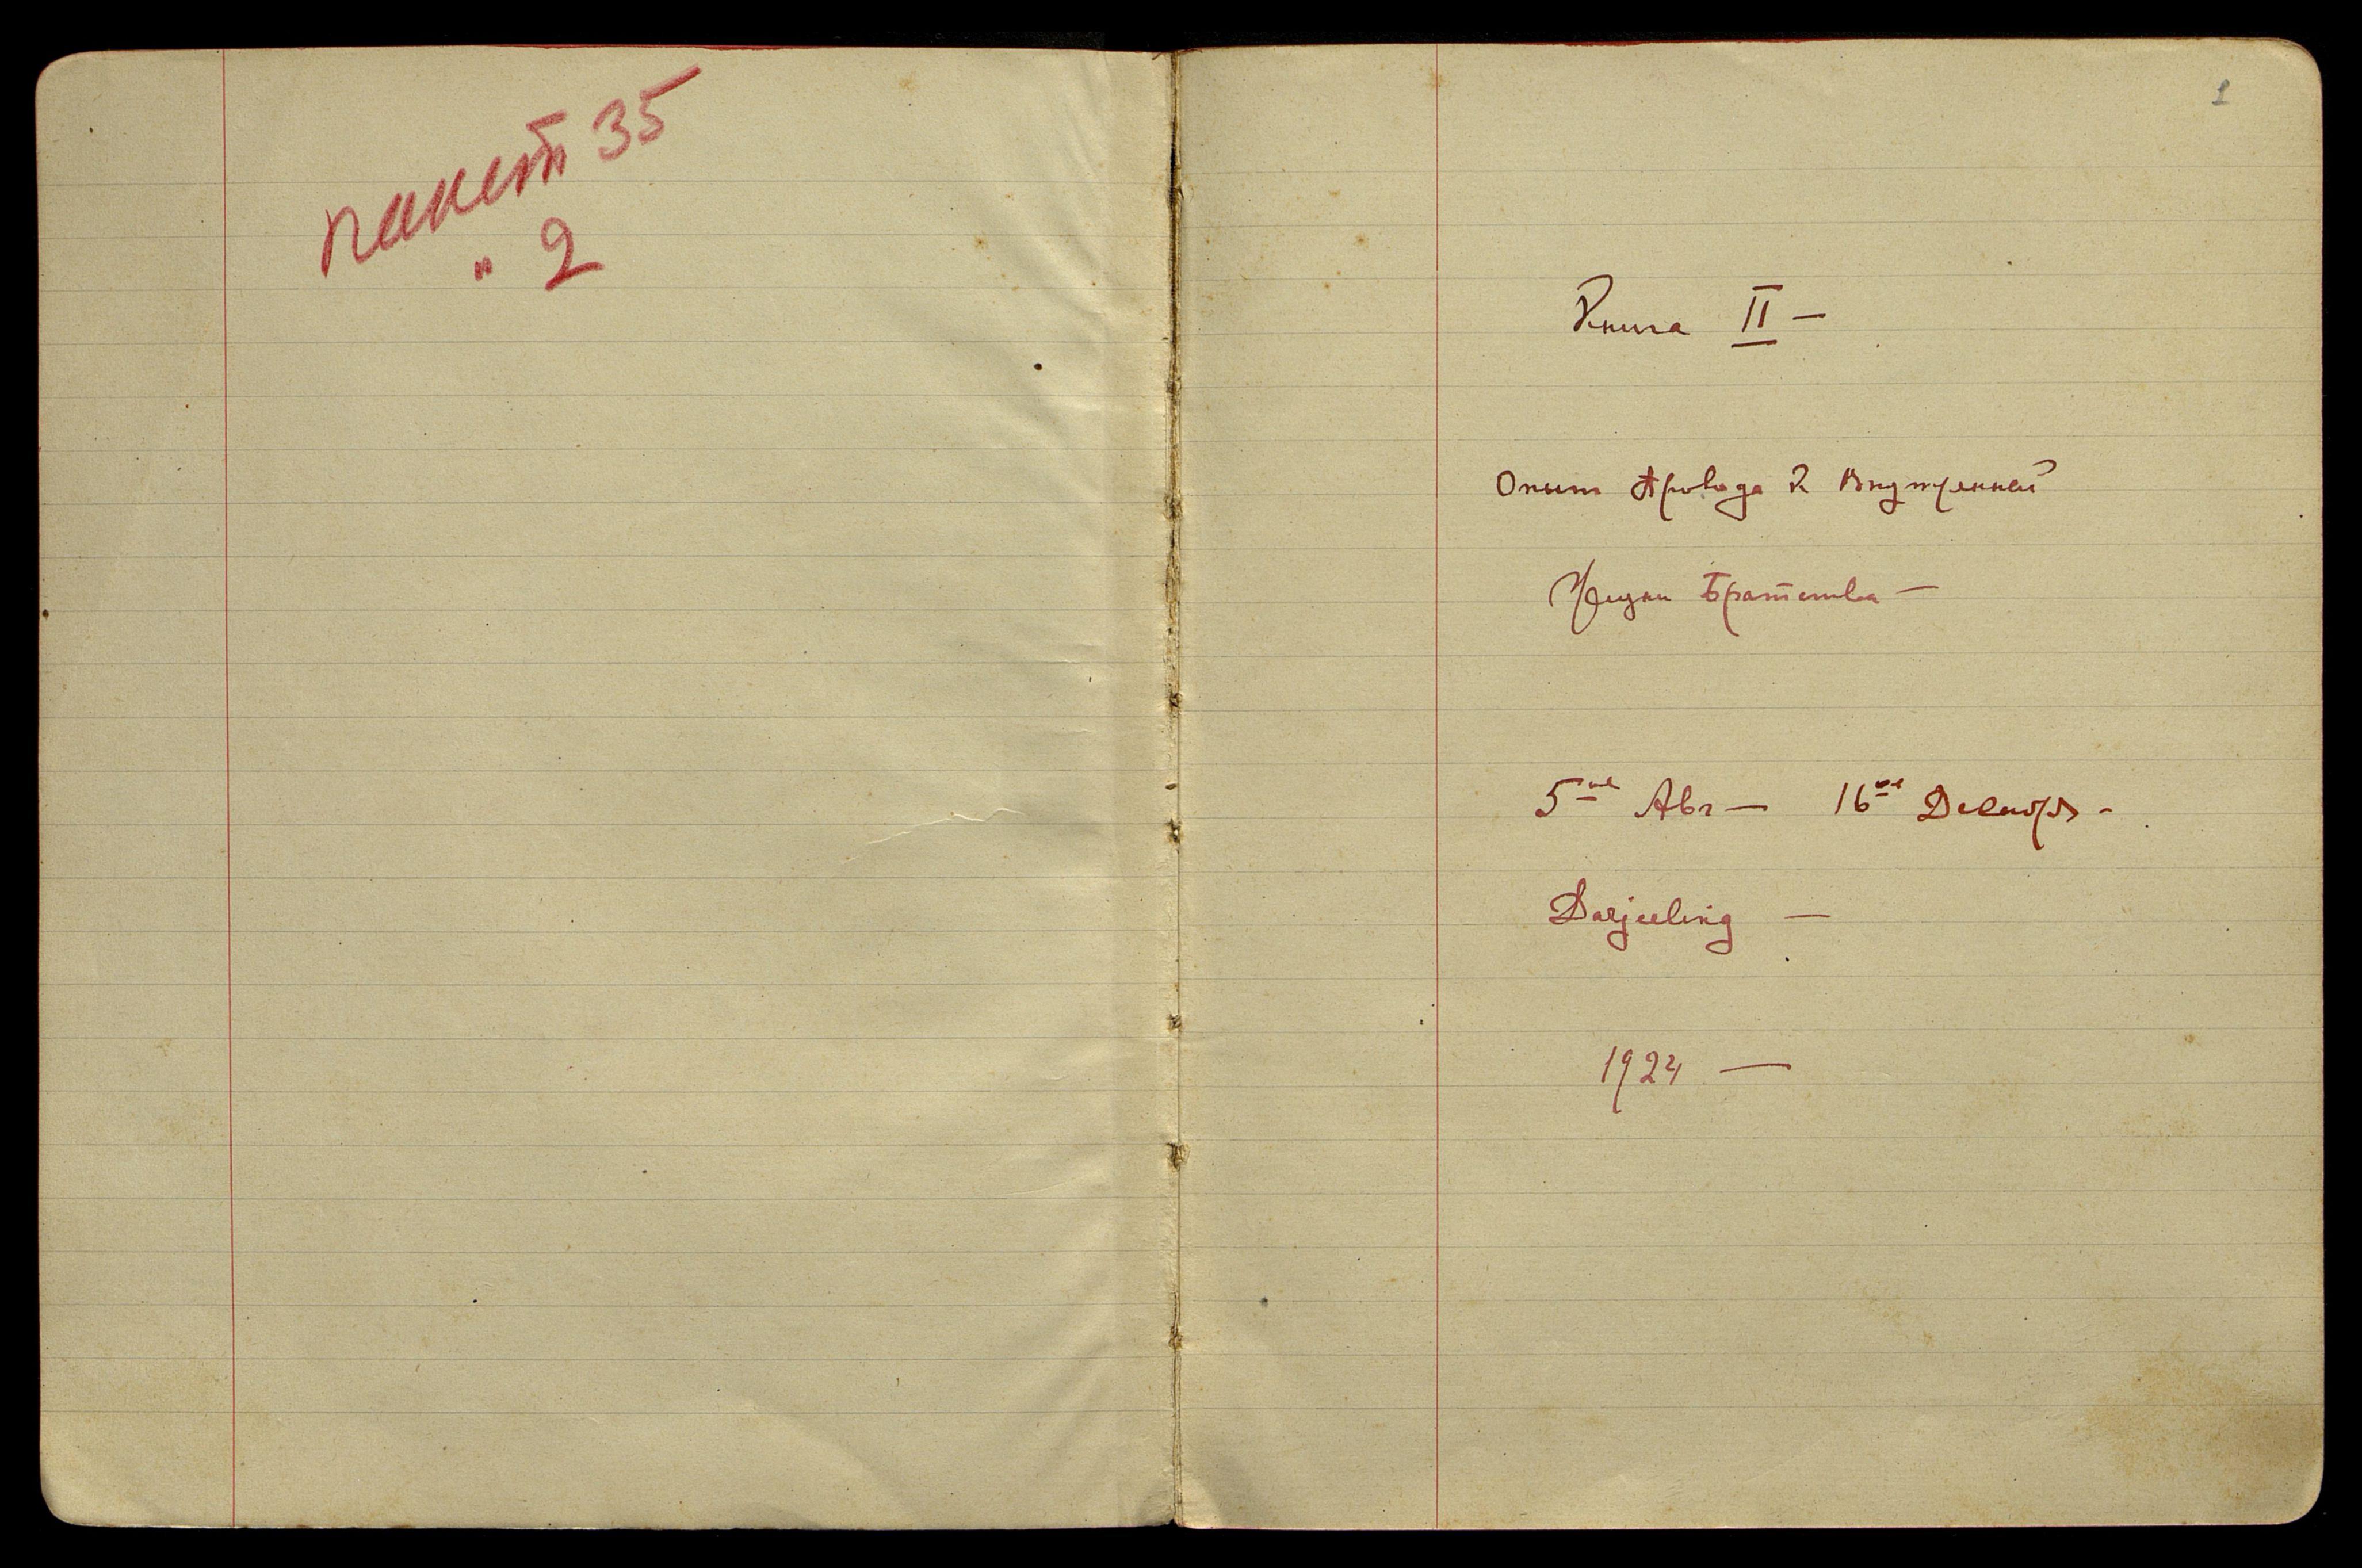 пакет 35
" 2
1
Книга II —
Опыт провода к Внутренней
Жизни Братства —
5ое Авг — 16ое Декабря -
Darjeeling —
1924 —